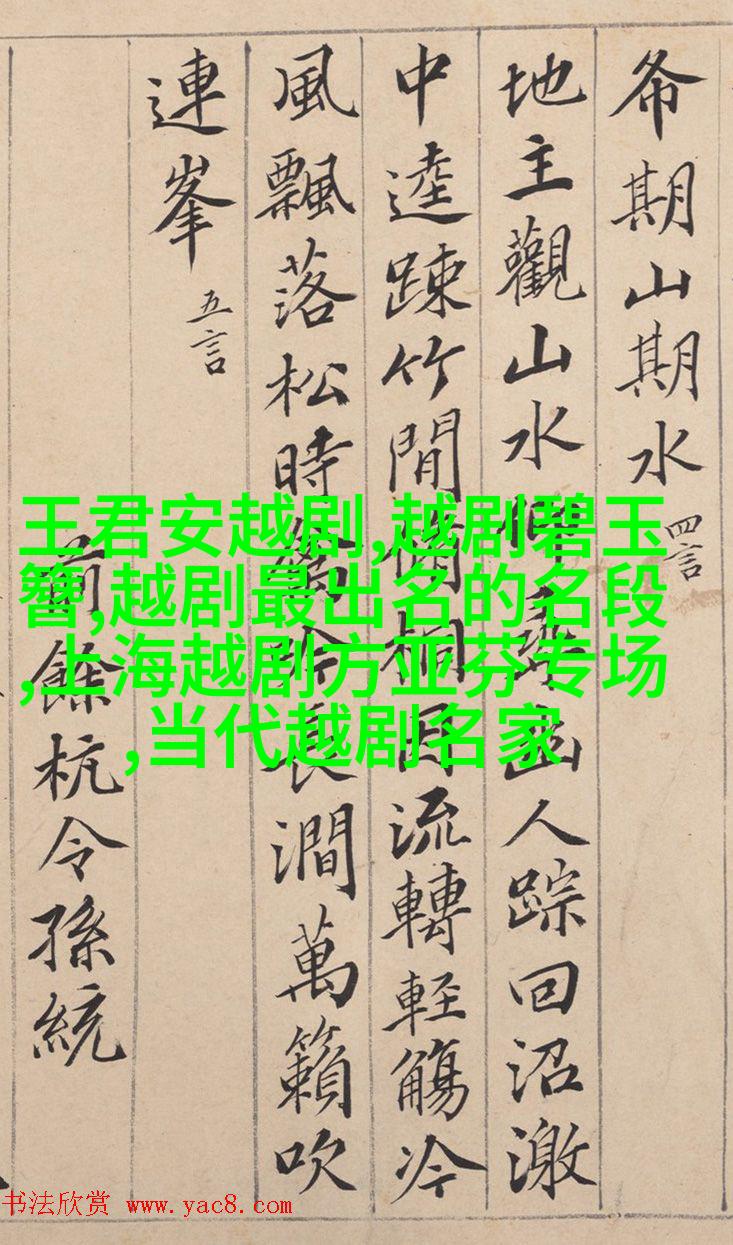 希期山期水 四言
地主觀山水 幽人踪回沼激
中逵踈竹間 桐 流轉輕觴冷
風飄落松時 澗萬籟吹
連峯 五言
前餘杭令孫統
王君安越剧,越剧碧玉
簪,越剧最出名的名段
,上海越剧方亚芬专场
,当代越剧名家
书法欣赏 www.yac8.com